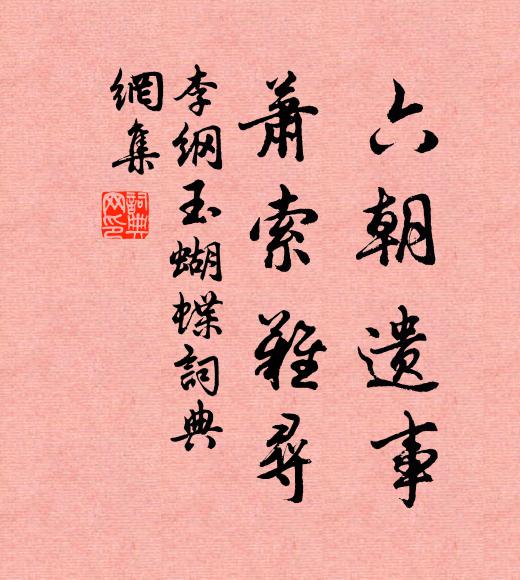 六朝遗事
萧索难寻
李纲玉蝴蝶詞典
網集
詞典
网印